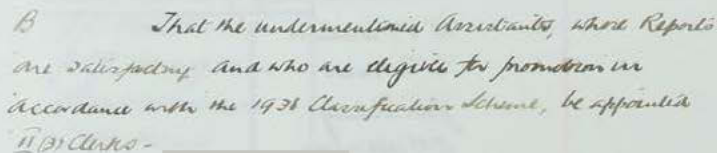 B That the undermentioned Assistants, whose Reports
are satisfactory and who are eligible for promotion in
accordance with the 1938 Classification Scheme, be appointed
II (3) Clerks -